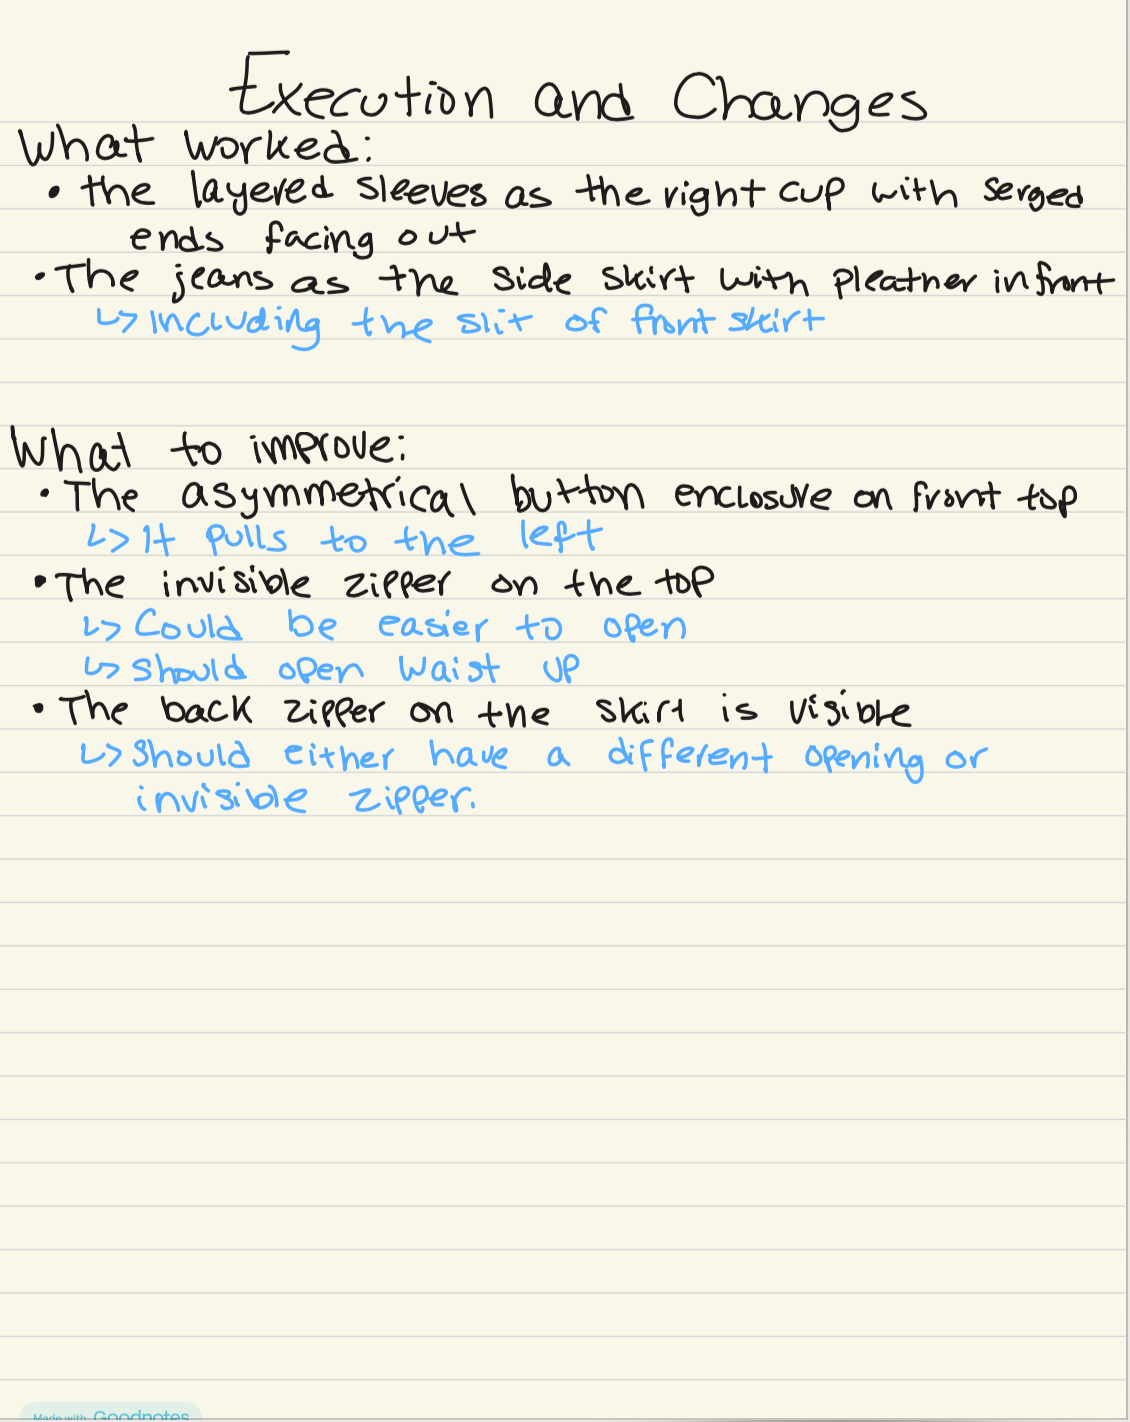 Execution and Changes
What worked:
• the layered sleeves as the right cup with serged
ends facing out
• The jeans as the side skirt with pleather infront
↳> Including the slit of front skirt
What to improve:
• The asymmetrical button enclosure on front top
↳> It pulls to the left
• The invisible zipper on the top
↳> Could be easier to open
↳> should open waist up
• The back zipper on the skirt is visible
↳> Should either have a different opening or
invisible zipper.
Made with Goodnotes